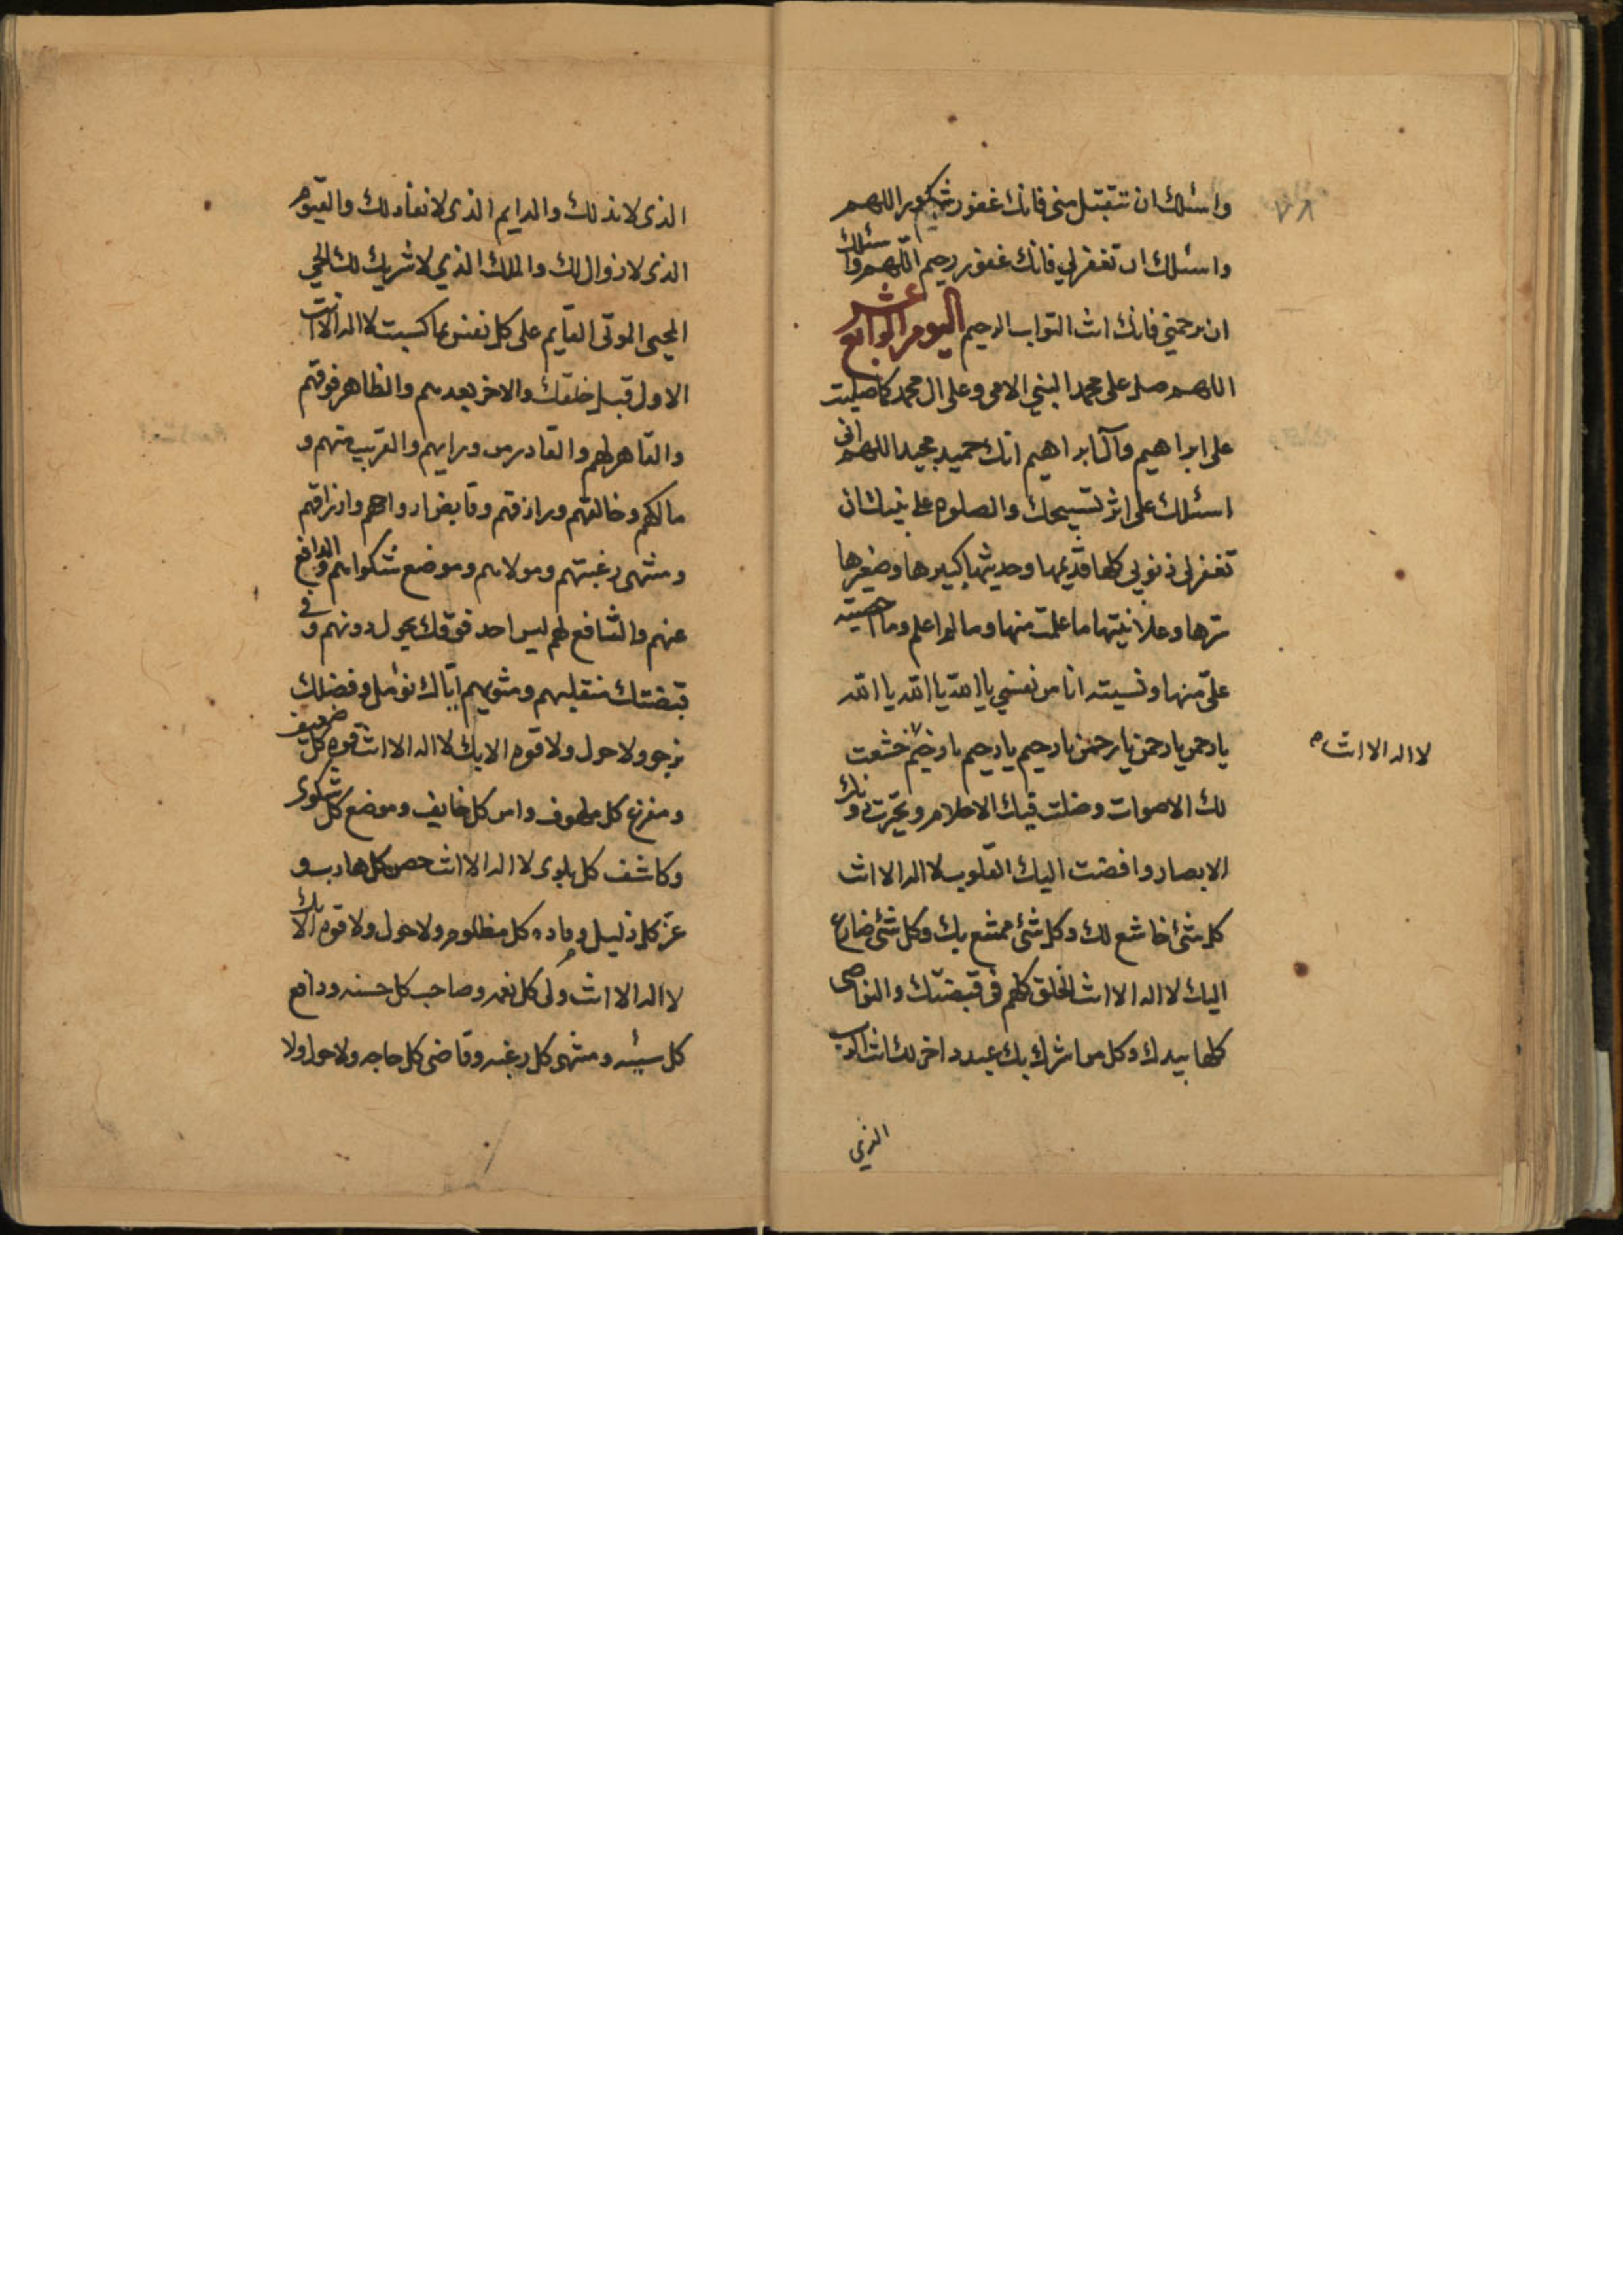 ٧٨
واسئلك ان تتقبل مني فانك غفور شكور اللهم
واسئلك ان تغفر لي فانك غفور رحيم اللهم واسئلك
ان ترحمني فانك انت التواب الرحيم اليوم الرابع عشر
اللهم صل على محمد النبي الامى وعلى ال محمد كما صليت
على ابراهيم وآل ابراهيم انك حميد مجيد اللهم انى
اسئلك على اثر تسبيحك والصلوه على نبيك ان
تغفر لى ذنوبي كلها قديمها وحديثها كبيرها وصغيرها
سرها وعلانيتها ما علمت منها وما لم اعلم وما احصيته
علىّ منها ونسيته انا من نفسي يا الله يا الله يا الله
يا رحمن يا رحمن يا رحمن يا رحيم يا رحيم يا رحيم خشعت
لا اله الا انت
لك الاصوات وضلت فيك الاحلام وتحيرت دونك
الابصار وافضت اليك القلوب لا اله الا انت
كل شئ خاشع لك وكل شئ ممتنع بك وكل شئ ضارع
اليك لا اله الا انت الخلق كلهم في قبضتك والنواصى
كلها بيدك وكل من اشرك بك عبد داخر لك انت الرب
الذي
الذى لا ند لك والدايم الذى لا نفاد لك والقيوم
الذى لا زوال لك والملك الذي لا شريك لك الحي
المحيى الموتى القايم على كل نفس بما كسبت لا اله الا انت
الاول قبل خلقك والاخر بعدهم والظاهر فوقهم
والقاهر لهم والقادر من ورايهم والقريب منهم و
مالكهم وخالقهم ورازقهم وقابض ارواحهم وارزاقهم
ومنتهى رغبتهم ومولاهم وموضع شكواهم والدافع
عنهم والشافع لهم ليس احد فوقك يحول دونهم وفي
قبضتك منقلبهم ومثويهم اياك نؤمل وفضلك
نرجو ولا حول ولا قوه الا بك لا اله الا انت قوه كل ضعيف
ومفزع كل ملهوف وامن كل خايف وموضع كل شكوى
وكاشف كل بلوى لا اله الا انت حصن كل هارب و
عز كل ذليل وماده كل مظلوم ولا حول ولا قوه الا بك
لا اله الا انت ولى كل نعمه وصاحب كل حسنه ودافع
كل سيئه ومنتهى كل رغبه وقاضى كل حاجه ولا حول ولا